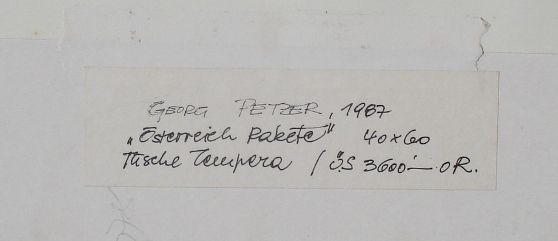 GEORG PETZER, 1987
„Österreich Rakete“ 40x60
Mische Tempera / ÖS 3600.— OR.